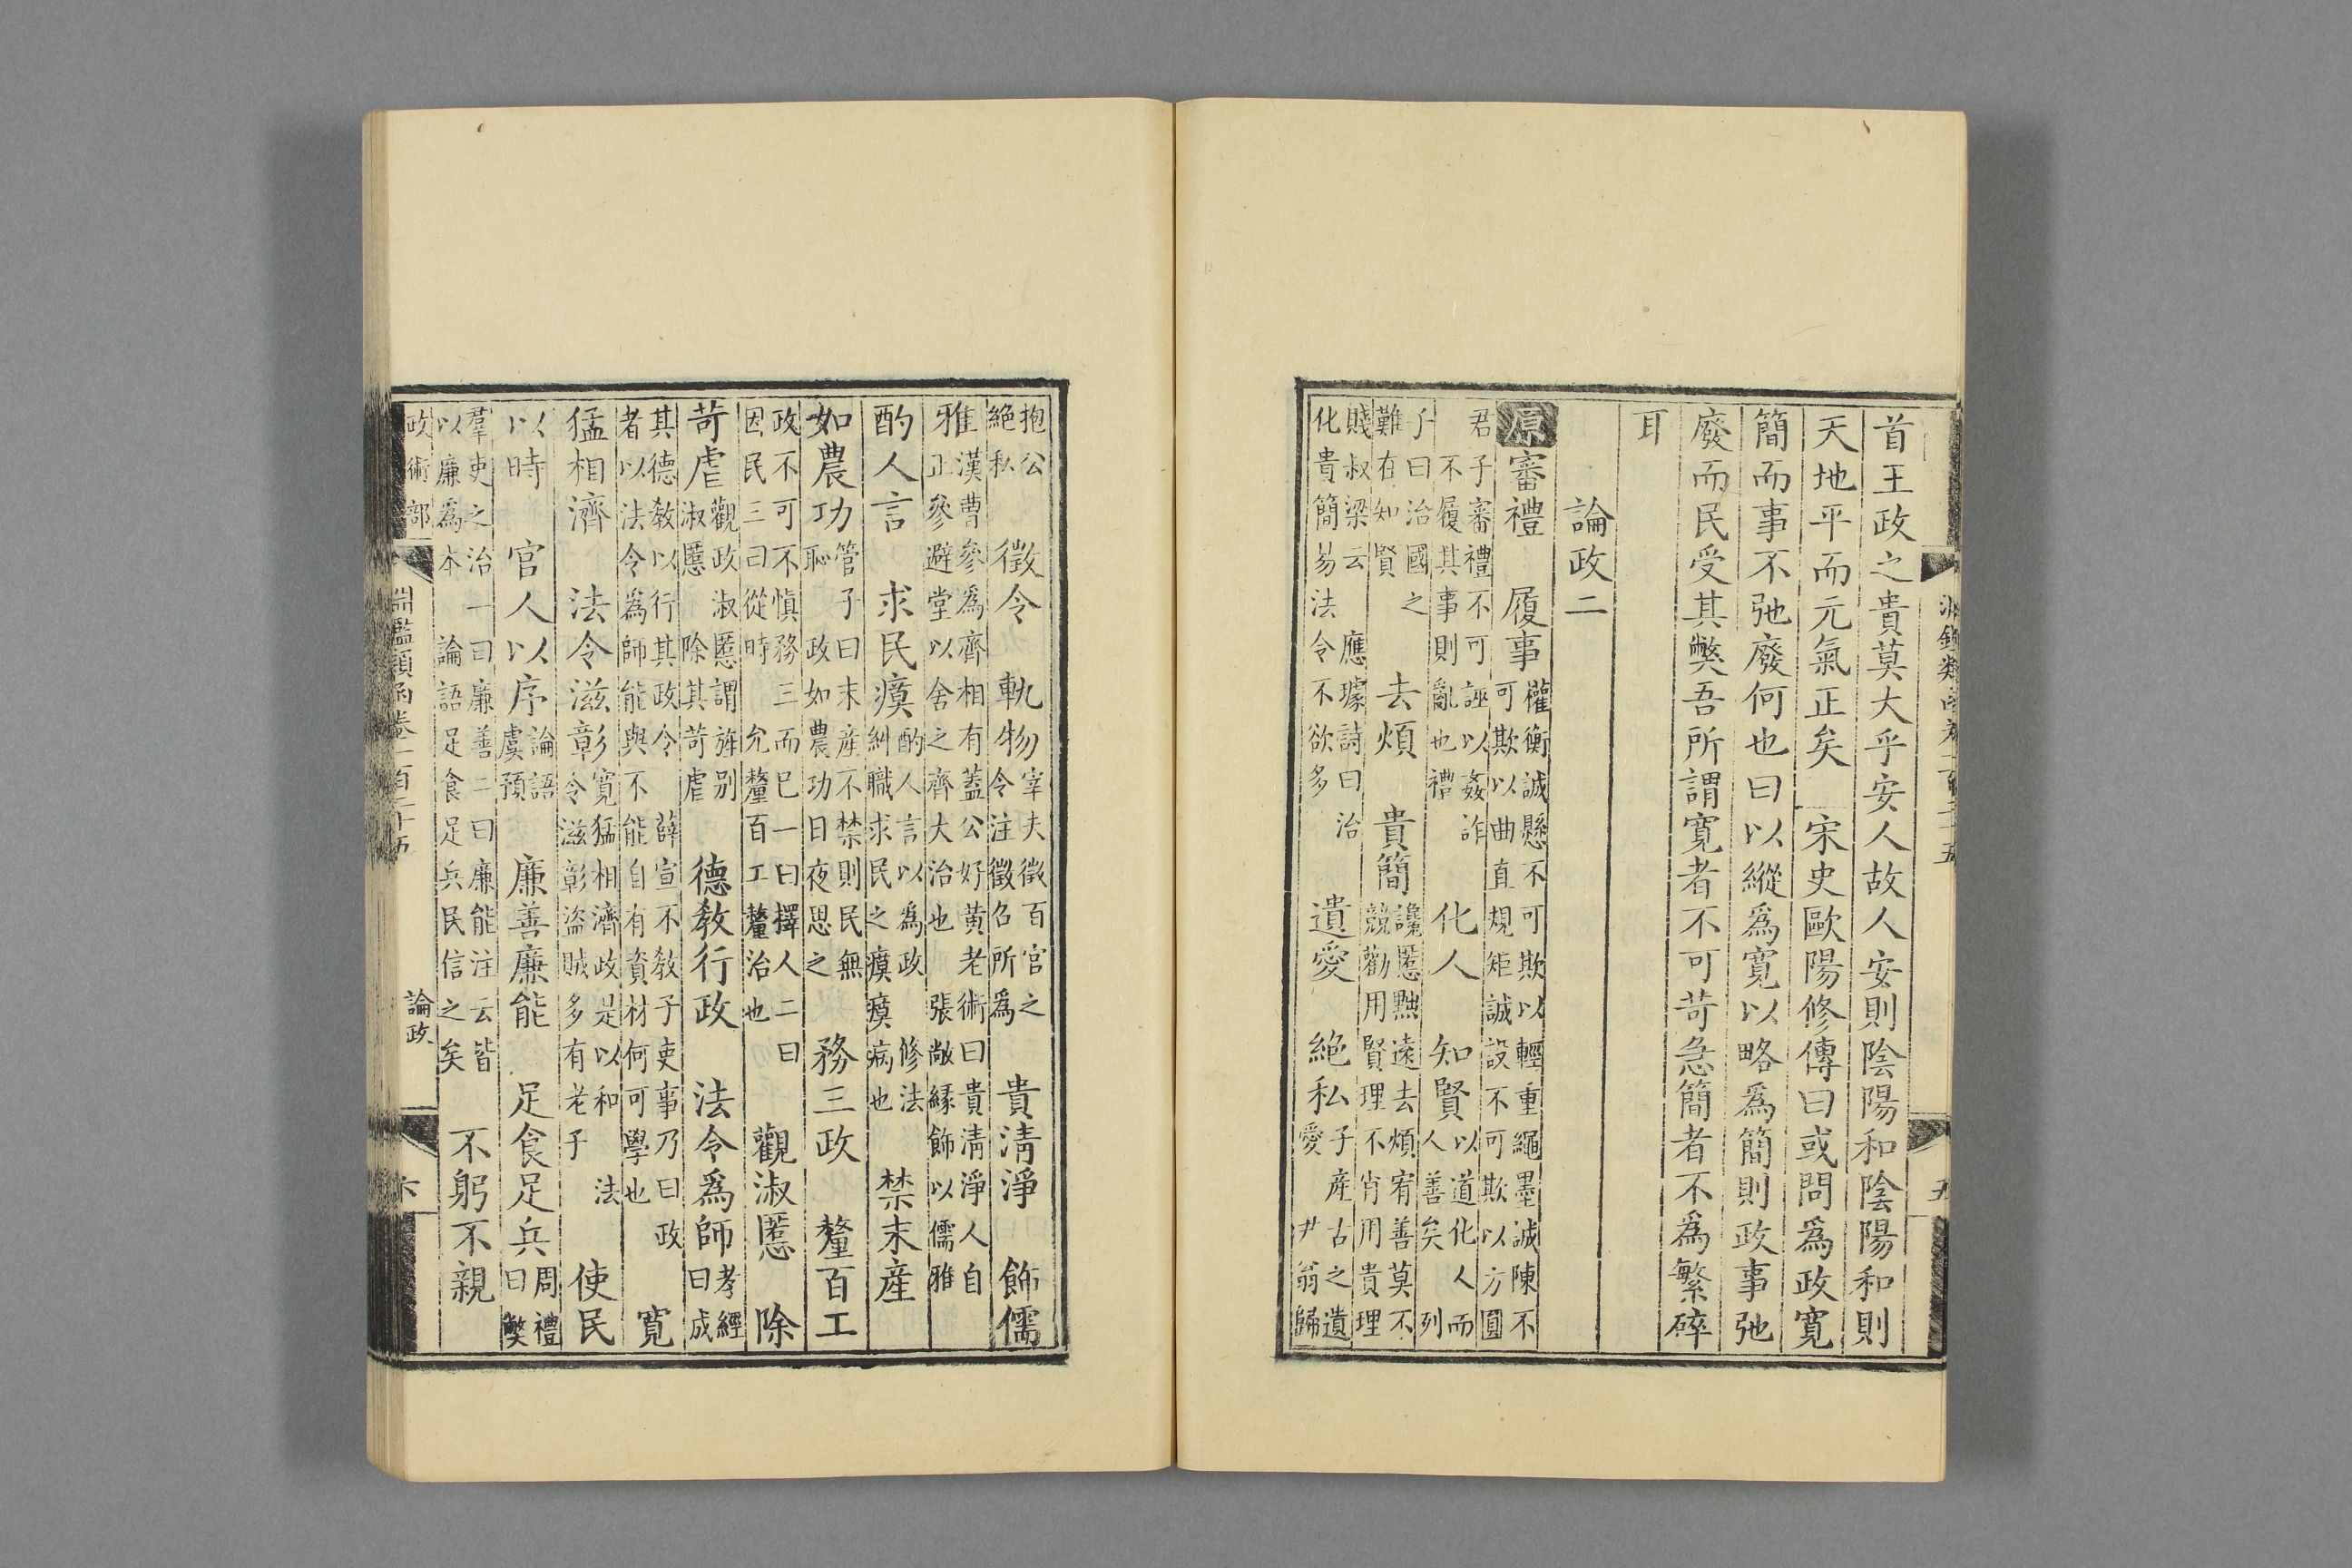 淵鑑類函卷一百二十五 五
首王政之貴莫大乎安人故人安則陰陽和陰陽和則
天地平而元氣正矣 宋史歐陽修傳曰或問爲政寬
簡而事不弛廢何也曰以縱爲寬以略爲簡則政事弛
廢而民受其弊吾所謂寬者不可苛急簡者不爲繁碎
耳
論政二
原審禮 履事 權衡誠懸不可欺以輕重繩墨誠陳不
可欺以曲直規矩誠設不可欺以方圓
君子審禮不可誣以姦詐
不履其事則亂也禮 化人 知賢 以道化人而
人善矣列
子曰治國之
難在知賢 去煩 貴簡 讒慝黜遠去煩宥善莫不
競勸用賢理不肖用貴理
賤叔梁云 應璩詩曰治
化貴簡易法令不欲多 遺愛 絕私 子產古之遺
愛 尹翁歸
抱公
絕私 徵令 軌物 宰夫徵百官之
令注徵召所爲 貴淸淨 飾儒
雅 漢曹參為齊相有蓋公好黃老術曰貴淸淨人自
正參避堂以舍之齊大治也 張敞緣飾以儒雅
酌人言 求民瘼 酌人言以為政 修法
糾職求民之瘼瘼病也 禁末產
如農功 管子曰末產不禁則民無
恥 政如農功日夜思之 務三政 釐百工
政不可不愼務三而已一曰擇人二曰
因民三曰從時 允釐百工釐治也 觀淑慝 除
苛虐 觀政淑慝謂旌別
淑慝 除其苛虐 德敎行政 法令爲師 孝經
曰成
其德敎以行其政令 薛宣不敎子吏事乃曰政
者以法令為師能與不能自有資材何可學也 寬
猛相濟 法令滋彰 寬猛相濟政是以和 法
令滋彰盜賊多有老子 使民
以時 官人以序 論語
虞預 廉善廉能 足食足兵 周禮
曰弊
羣吏之治一曰廉善二曰廉能注云皆
以廉爲本 論語足食足兵民信之矣 不躬不親
政術部 淵鑑類函卷一百二十五 論政 六